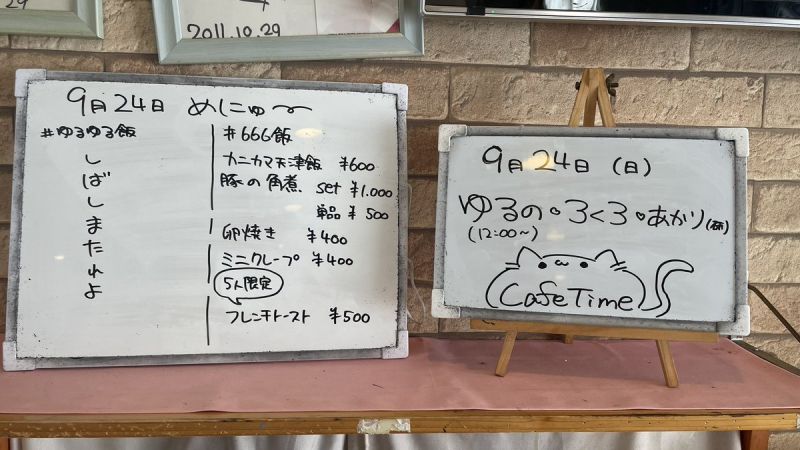 29
2011.10.29
9月24日 めにゅ〜
#ゆるゆる飯
しばしまたれよ
#666飯
カニカマ天津飯 ¥600
豚の角煮、set ¥1.000
単品 ¥500
卵焼き ¥400
ミニクレープ ¥400
5人限定
フレンチトースト ¥500
9月24日(日)
ゆるの・ろくろ・あかり(研)
(12:00〜)
Cafe Time